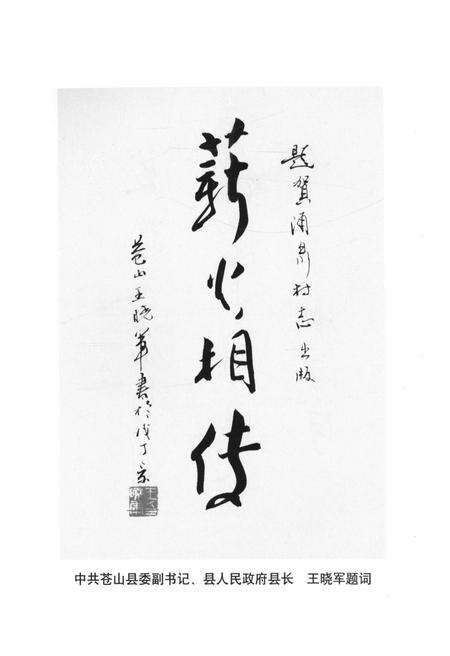 题贺浦新村志出版
薪火相传
苍山王晓军书
中共苍山县委副书记、县人民政府县长　王晓军题词